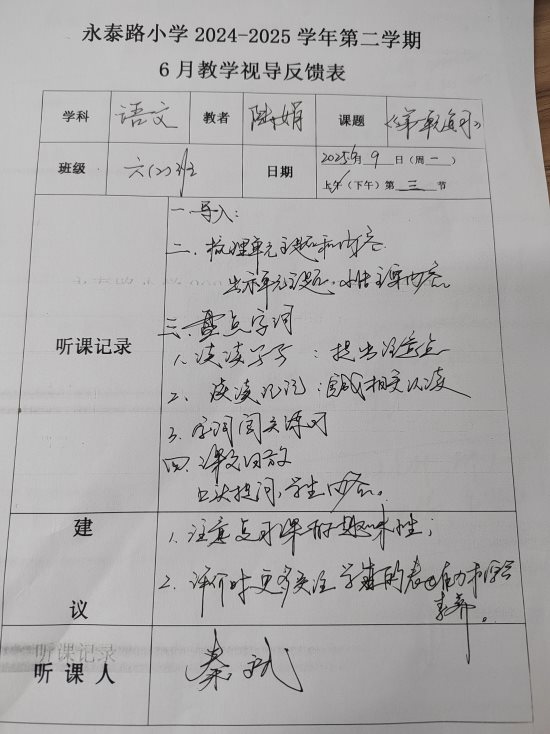 永泰路小学 2024-2025 学年第二学期
6 月教学视导反馈表
学科 语文 教者 陆娟 课题 《第单复习》
班级 六(2)班 日期 2025年6月 9 日(周一)
上午(下午)第 三 节
听课记录
一. 导入:
二. 梳理单元主题和内容
出示单元主题, 小结主要内容
三. 盘点字词
1. 读读写写 : 提出注意点
2. 读读记记 :
3. 字词闯关练习
四. 课文回放
提问, 学生回答。
建
议
1. 注意复习课的趣味性;
2. 评价时更多关注学生的表达能力和综合素养。
听课记录
听 课 人
秦